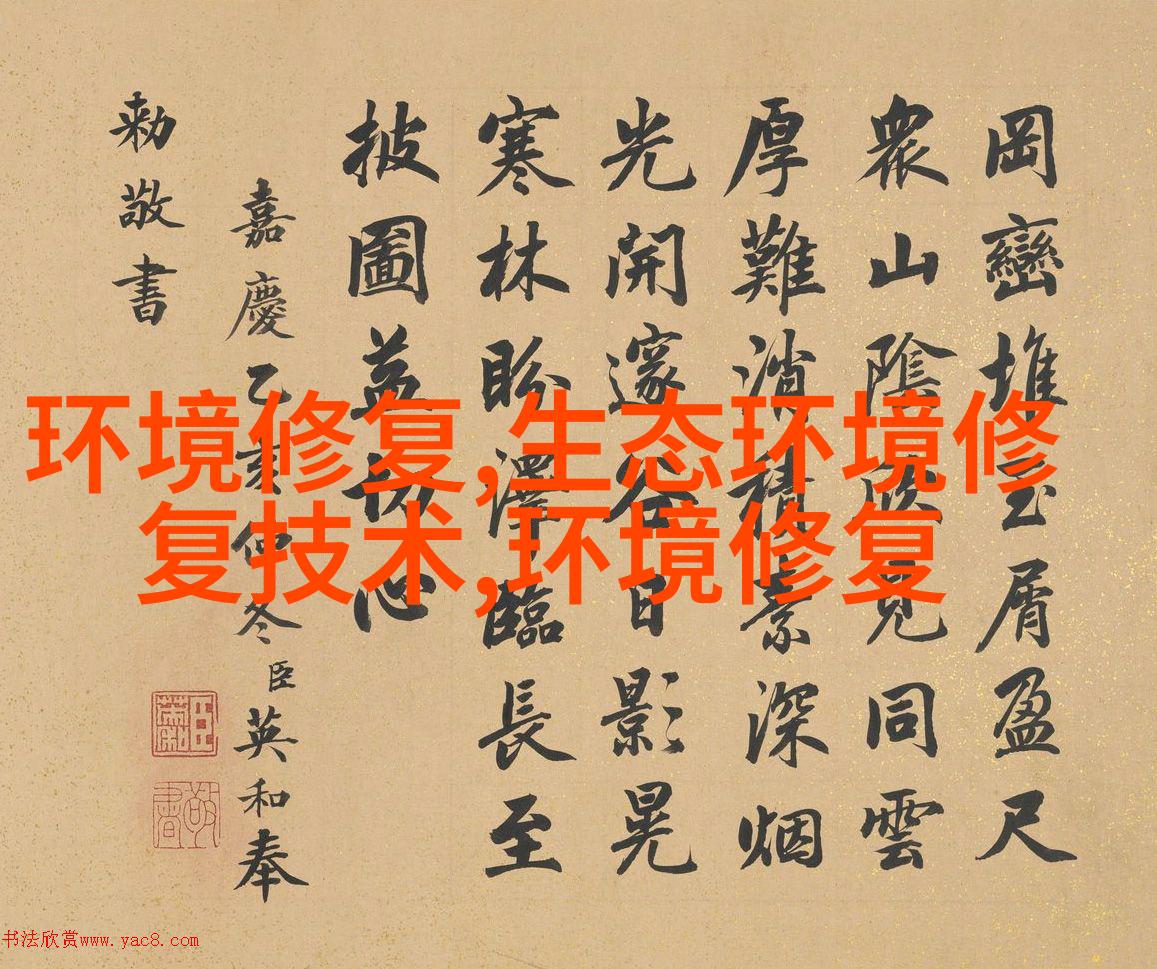 岡巒堆玉屑盈尺
衆山陰欣見同雲
厚難消積素深烟
光開邃谷日影晃
寒林盼澤臨長至
披圖益切心
嘉慶乙亥仲冬臣英和奉
勅敬書
敬書
环境修复,生态环境修
复技术,环境修复
书法欣赏www.yac8.com